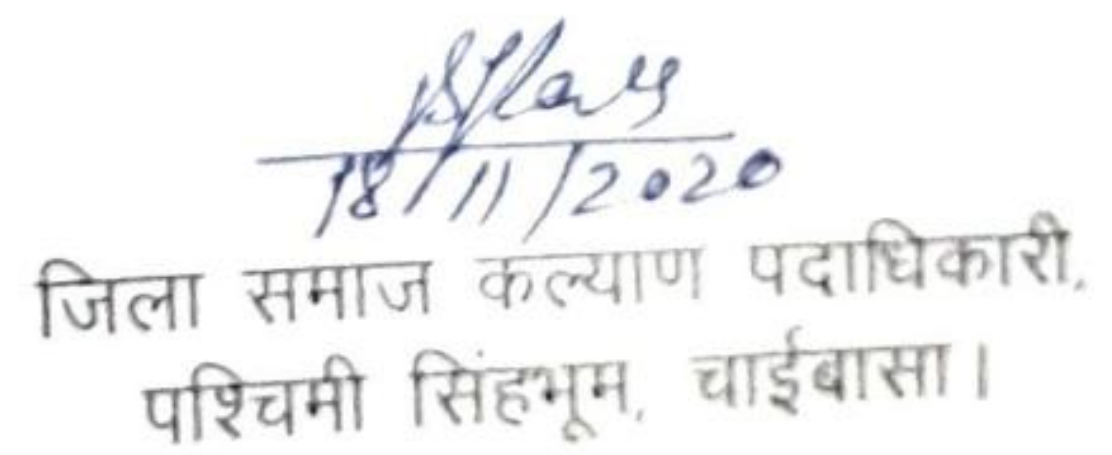 18/11/2020
जिला समाज कल्याण पदाधिकारी,
पश्चिमी सिंहभूम, चाईबासा।